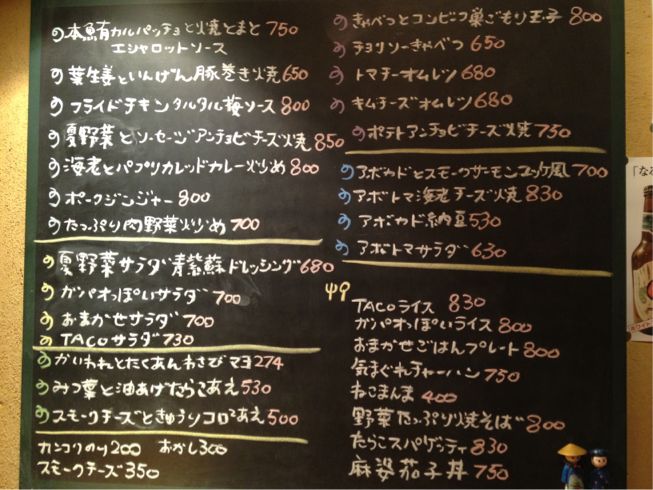 の本鮪カルパッチョと焼とまと 750
エシャロットソース
の葉生姜といんげん豚巻き焼 650
のフライドチキンタルタル梅ソース 800
の夏野菜とソーセージアンチョビチーズ焼 850
の海老とパプリカレッドカレー炒め 800
のポークジンジャー 800
のたっぷり肉野菜炒め 700
の夏野菜サラダ青紫蘇ドレッシング 680
のガパオっぽいサラダ 700
のおまかせサラダ 700
のTACOサラダ 730
のかいわれとたくあんわさびマヨ 274
のみつ葉と油あげたらこあえ 530
のスモークチーズときゅうりコロコロあえ 500
カンコクのり 200 おかし 300
スモークチーズ 350
のきゃべつとコンビーフ巣ごもり玉子 800
のチョリソーきゃべつ 650
のトマチーオムレツ 680
のキムチーズオムレツ 680
のポテトアンチョビチーズ焼 750
のアボカドとスモークサーモンユッケ風 700
のアボトマ海老チーズ焼 830
のアボカド納豆 530
のアボトマサラダ 630
TACOライス 830
ガパオっぽいライス 800
おまかせごはんプレート 800
気まぐれチャーハン 750
ねこまんま 400
野菜たっぷり焼そば 800
たらこスパゲッティ 830
麻婆茄子丼 750